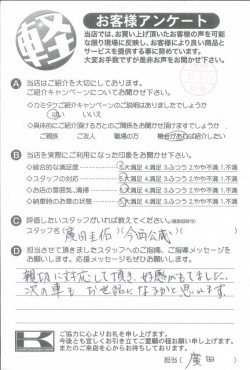 軽
お客様アンケート
当店では、お買い上げ頂いたお客様の声を可能
な限り現場に反映し、お客様により良い商品と
サービスを提供する事に努めています。
大変お手数ですが是非お声をお聞かせ下さい。
A 当店はご紹介を大切にしております。
ご紹介キャンペーンについてお聞かせ下さい
◇カミタケご紹介キャンペーンのご説明はありましたでしょうか
はい いいえ
◇具体的にご紹介頂ける方とのご関係をお聞かせ頂けますでしょうか
ご親族 ご友人 職場の方 機会があれば紹介したい
B 当店を実際にご利用になった印象をお聞かせ下さい。
◇総合的な満足度 5.大満足 4.満足 3.ふつう 2.やや不満 1.不満
◇スタッフの対応 5.大満足 4.満足 3.ふつう 2.やや不満 1.不満
◇お店の雰囲気、清掃 5.大満足 4.満足 3.ふつう 2.やや不満 1.不満
◇納車時のお車の状態 5.大満足 4.満足 3.ふつう 2.やや不満 1.不満
C 評価したいスタッフがいれば教えてください。(複数回答可)
スタッフ名( 廣田圭佑 )( 今西公威 )
D 担当させて頂きましたスタッフへのご指摘、ご指導メッセージを
お願いします。応援メッセージもぜひお願いします。
親切に対応して頂き、好感がもてました。
次の車も お世話になろうかと思います。
K
ご協力に心よりお礼を申し上げます。
今後とも宜しくお引き立てご愛顧の程お願い申し上げます。
またのご来店を心からお待ちしております。
担当( 廣田 )